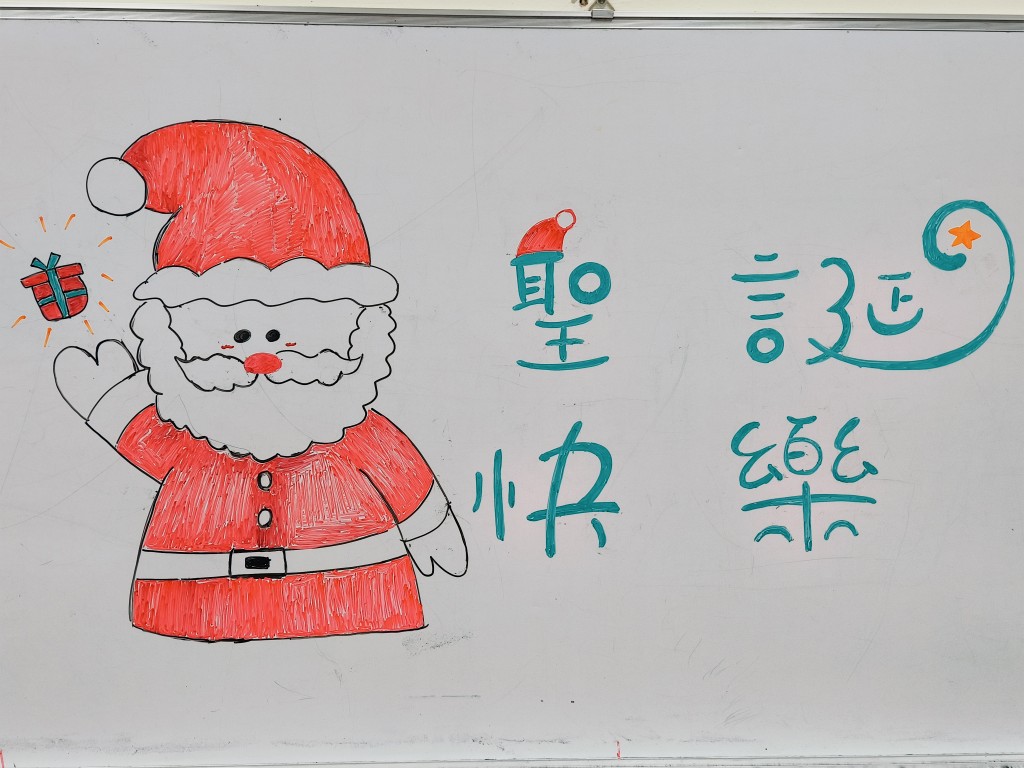 聖誕
快樂